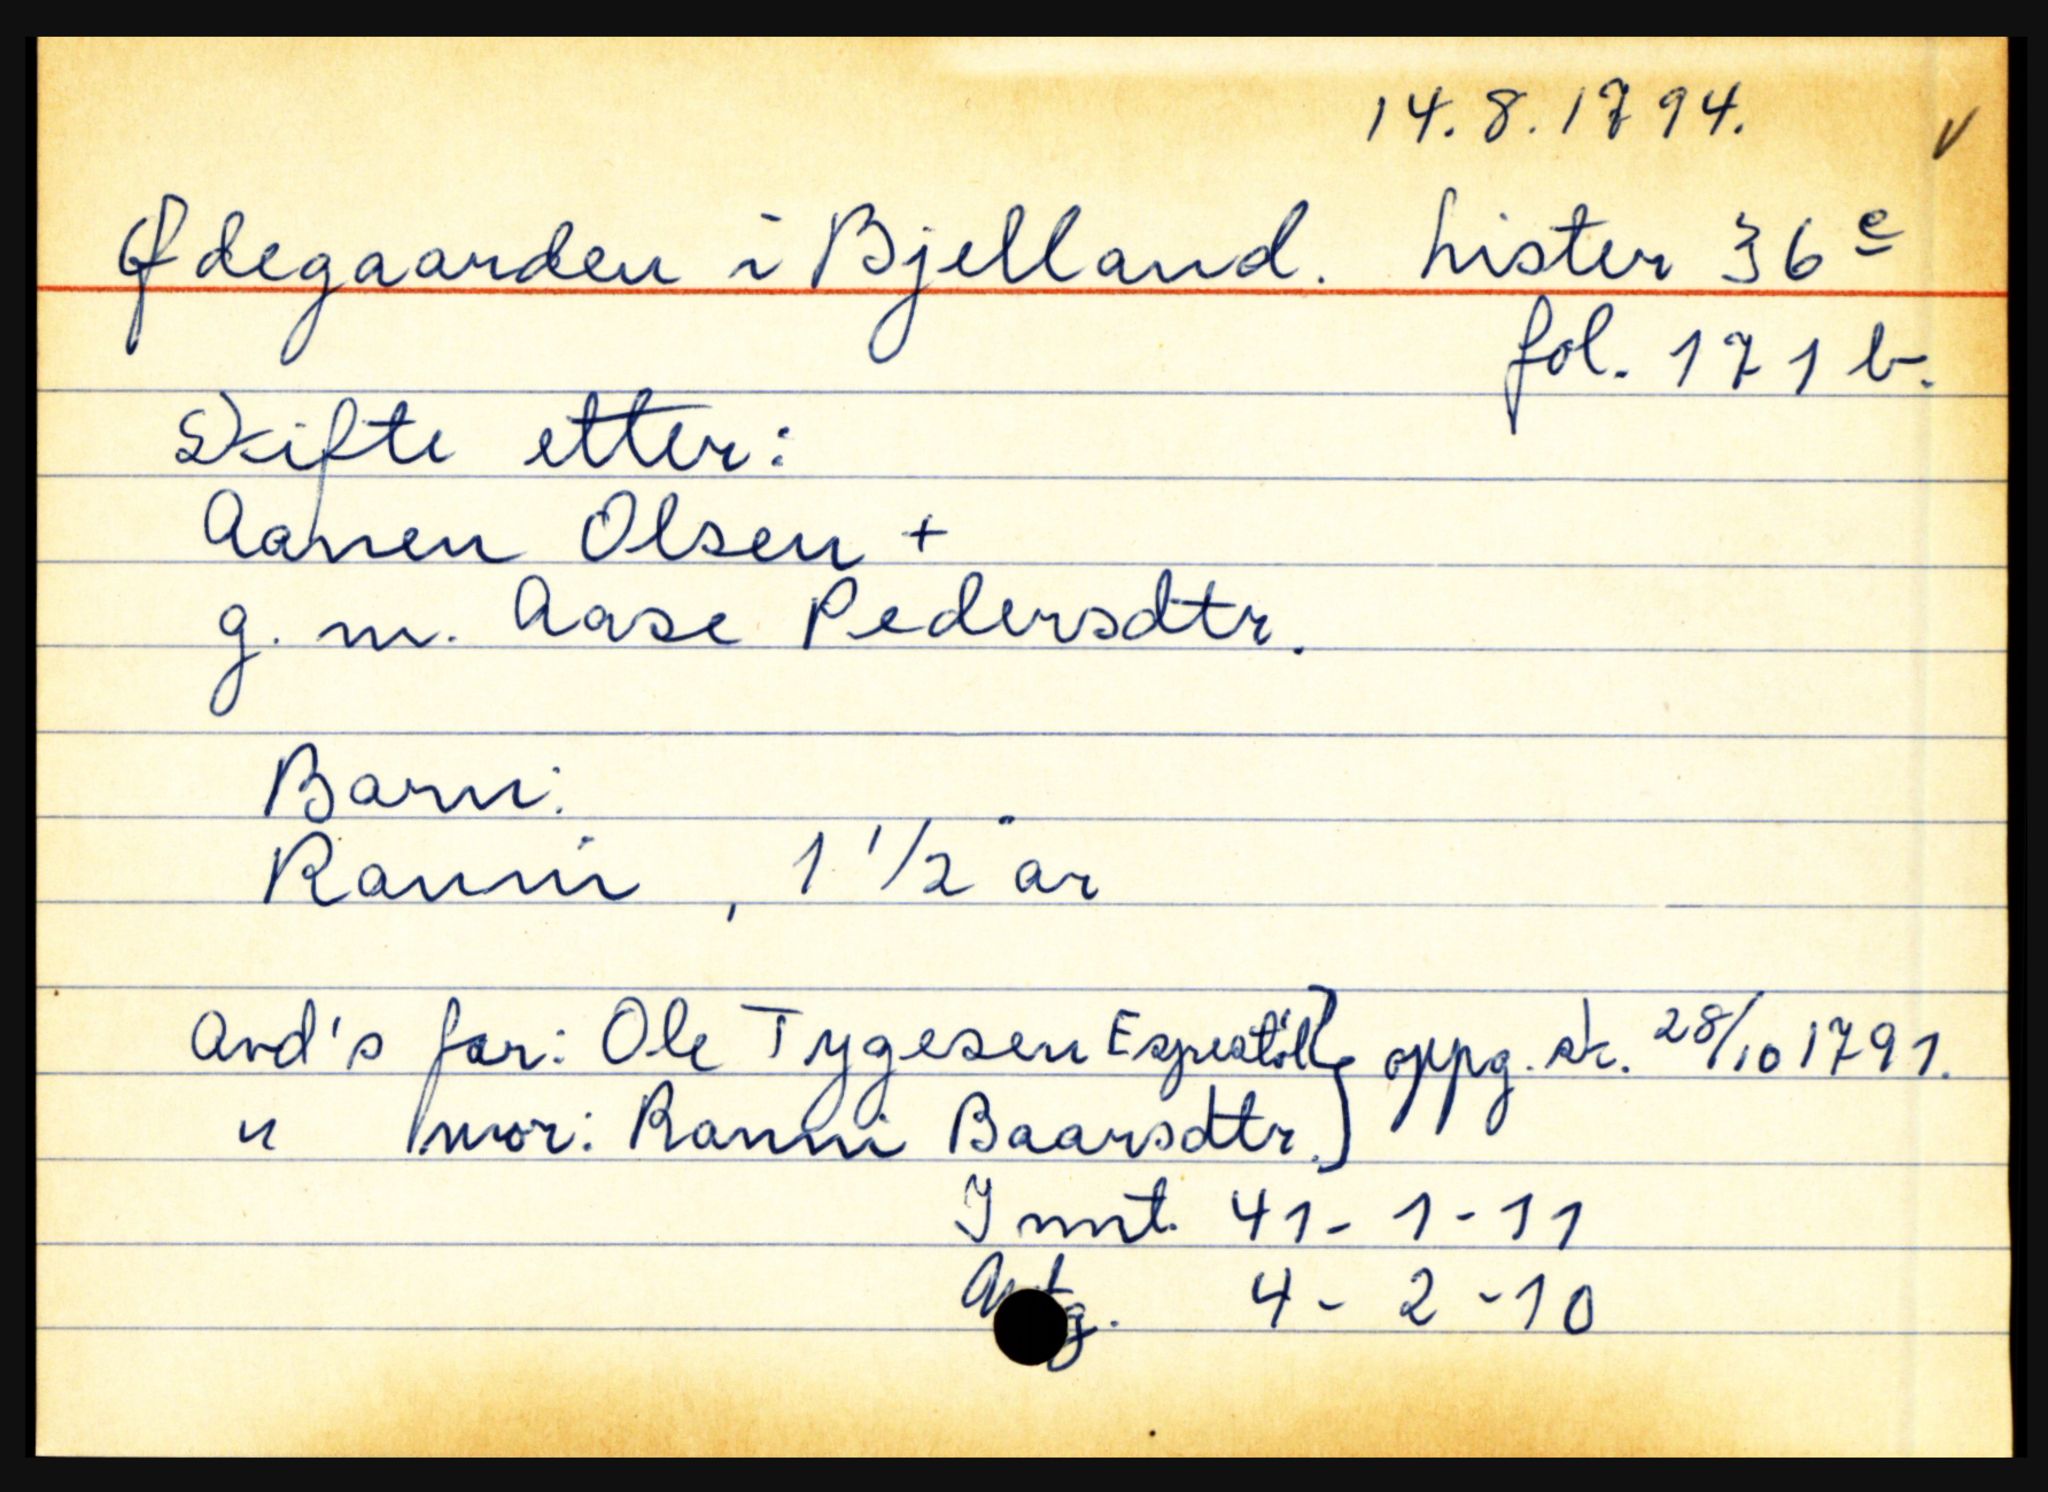 14.8.1794.
Ødegaarden i Bjelland. Lister 36e
fol. 171 b.
Skifte etter:
Aanen Olsen +
g. m. Aase Pedersdtr.
Barn:
Ranni, 1 1/2 år
Avd's far: Ole Tygesen } oppg. sk. 28/10 1791.
" mor: Ranni Baarsdtr. }
Innt. 41 - 1 - 11
4 - 2 - 10